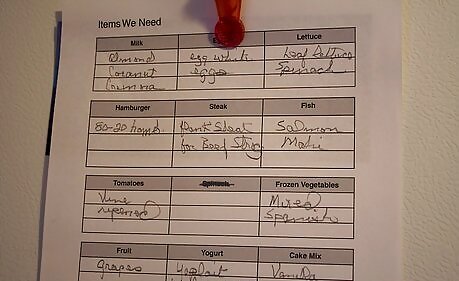 Items We Need
Milk E Lettuce
Almond egg white Leaf Lettuce
Coconut eggs Spinach
Hamburger Steak Fish
80-20 Salmon
for Beef Mahi
Tomatoes Spinach Frozen Vegetables
Vine Mixed
ripened Spanish
Fruit Yogurt Cake Mix
grapes Yoplait Vanilla